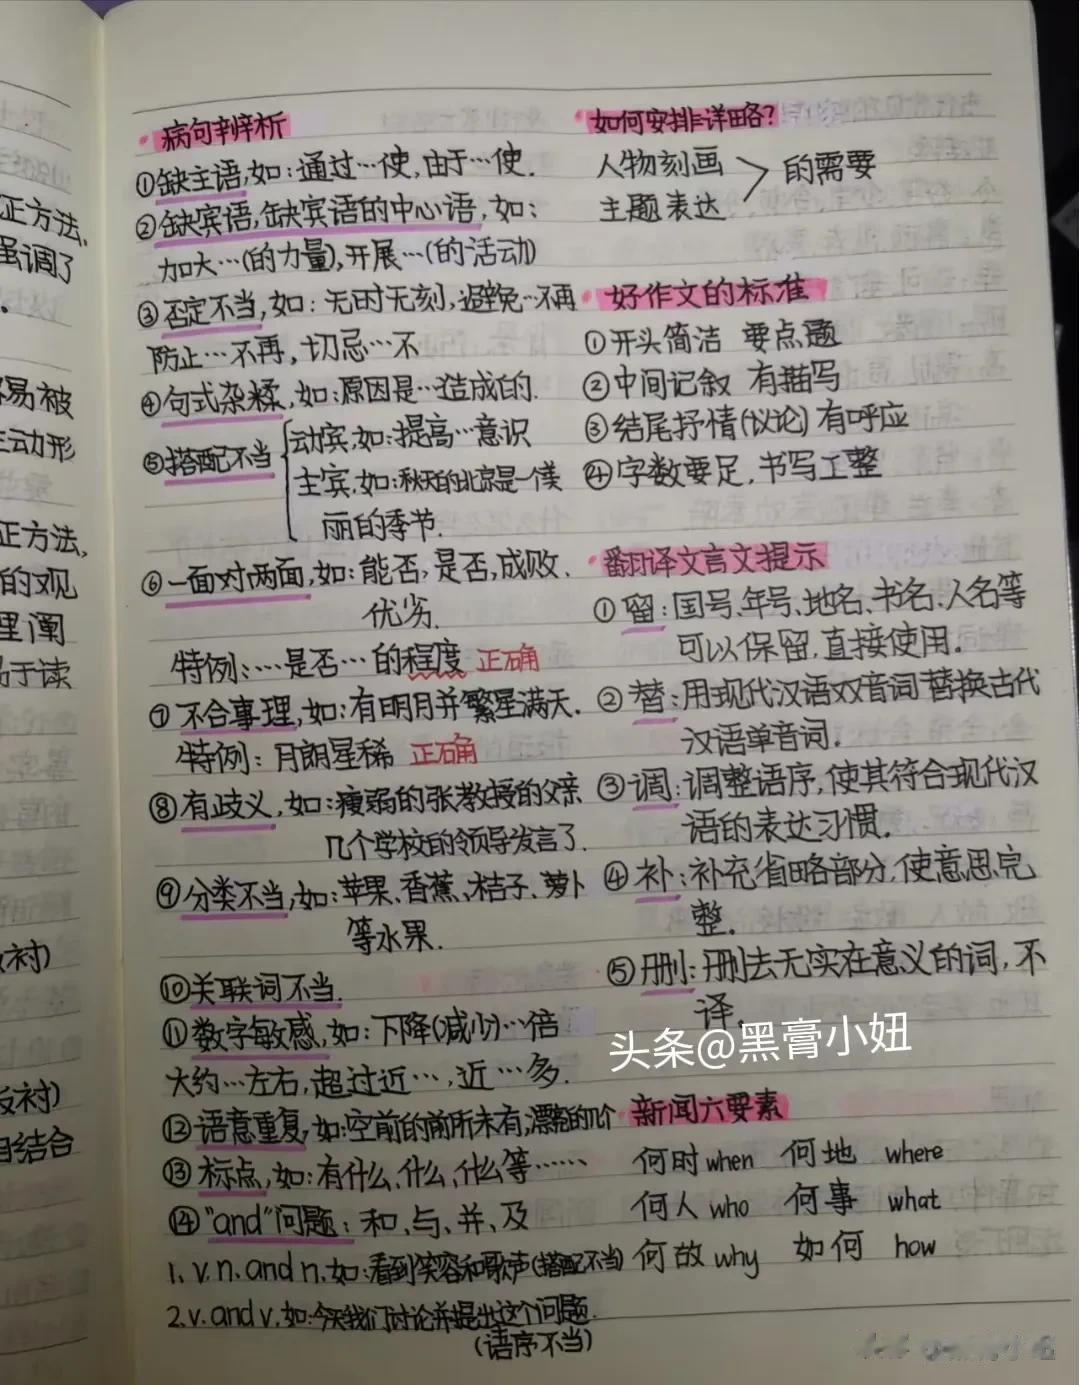 正方法,
强调了
易被
动形
正方法,
的观
理阐
易于读
衬)
反衬)
结合
病句辨析
①缺主语,如:通过…使,由于…使.
②缺宾语,缺宾语的中心语,如:
加大…(的力量),开展…(的活动)
③否定不当,如:无时无刻,避免…不再
防止…不再,切忌…不
④句式杂糅,如:原因是…造成的.
⑤搭配不当
动宾,如:提高…意识
主宾,如:秋天的北京是一个美
丽的季节.
⑥一面对两面,如:能否,是否,成败.
优劣.
特例:…是否…的程度 正确
⑦不合事理,如:有明月并繁星满天.
特例:月朗星稀 正确
⑧有歧义,如:瘦弱的张教授的父亲
几个学校的领导发言了.
⑨分类不当,如:苹果、香蕉、桔子、萝卜
等水果.
⑩关联词不当.
⑪数字敏感,如:下降(减少)…倍
大约…左右,超过近…,近…多.
⑫语意重复,如:空前的前所未有,漂亮的几个
⑬标点,如:有什么、什么、什么等……
⑭"and"问题:和、与、并、及
1. v. n. and n. 如:看到笑容和歌声(搭配不当)
2. v. and v. 如:今天我们讨论并提出这个问题.
(语序不当)
如何安排详略?
人物刻画
主题表达
的需要
好作文的标准
①开头简洁 要点题
②中间记叙 有描写
③结尾抒情(议论)有呼应
④字数要足,书写工整
翻译文言文提示
①留:国号、年号、地名、书名、人名等
可以保留,直接使用.
②替:用现代汉语双音词替换古代
汉语单音词.
③调:调整语序,使其符合现代汉
语的表达习惯.
④补:补充省略部分,使意思完
整.
⑤删:删去无实在意义的词,不
译.
头条@黑膏小妞
新闻六要素
何时when 何地 where
何人 who 何事 what
何故why 如何 how